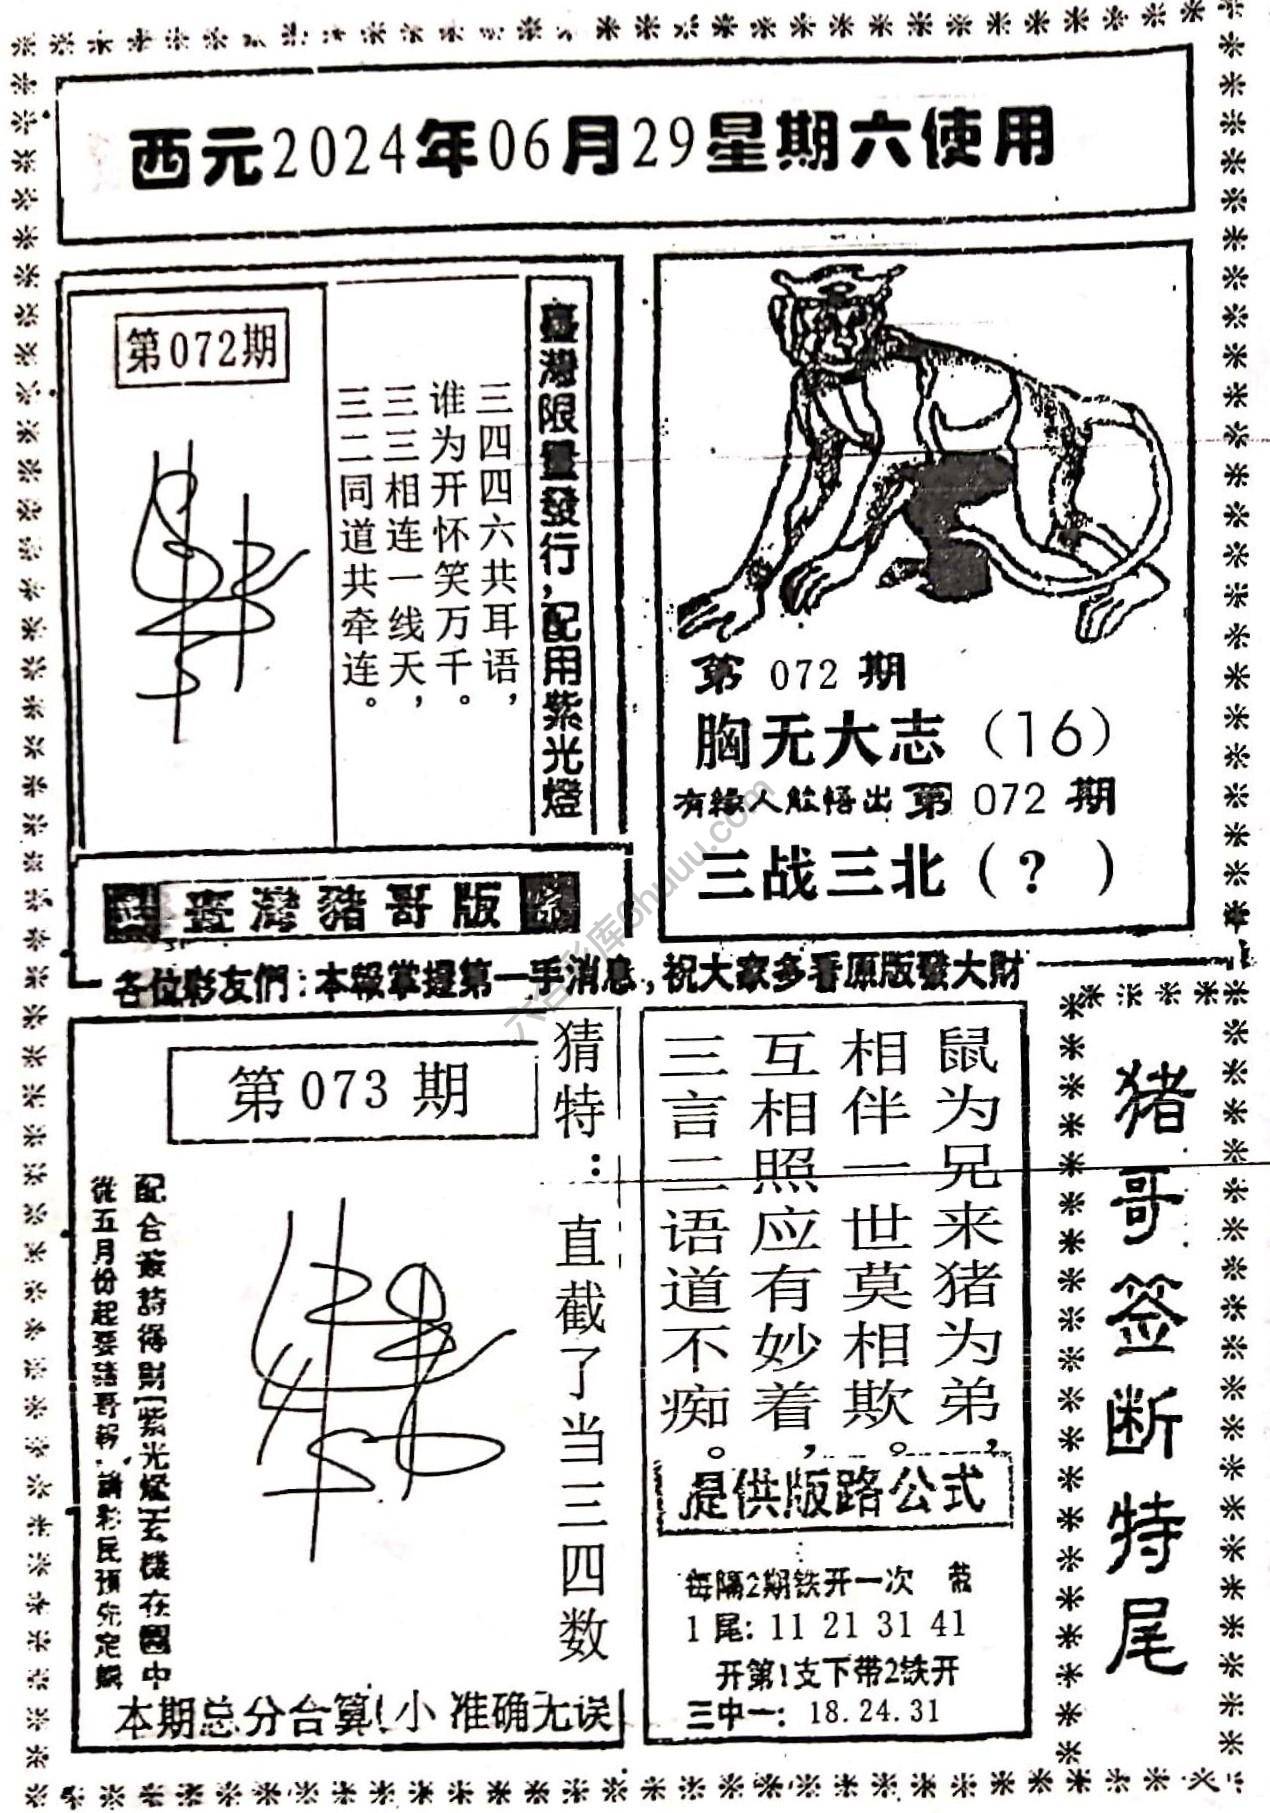 西元2024年06月29星期六使用
第072期
三四四六共耳语，
谁为开怀笑万千。
三三相连一线天，
三二同道共牵连。
臺灣限量發行，配用紫光燈
臺灣豬哥版
第 072 期
胸无大志（16）
有緣人能悟出 第 072 期
三战三北（？）
各位彩友們：本報掌握第一手消息，祝大家多看原版發大財
六合彩库6huuu.com
第073期
猜特：直截了当三四数
配合簽詩得財【紫光燈】玄機在圖中
從五月份起要豬哥報，請彩民預先定購
本期总分合算!小 准确无误
鼠为兄来猪为弟，
相伴一世莫相欺。
互相照应有妙着，
三言二语道不痴。
提供版路公式
每隔2期铁开一次 带
1 尾：11 21 31 41
开第1支下带2铁开
三中一：18.24.31
猪哥签断特尾